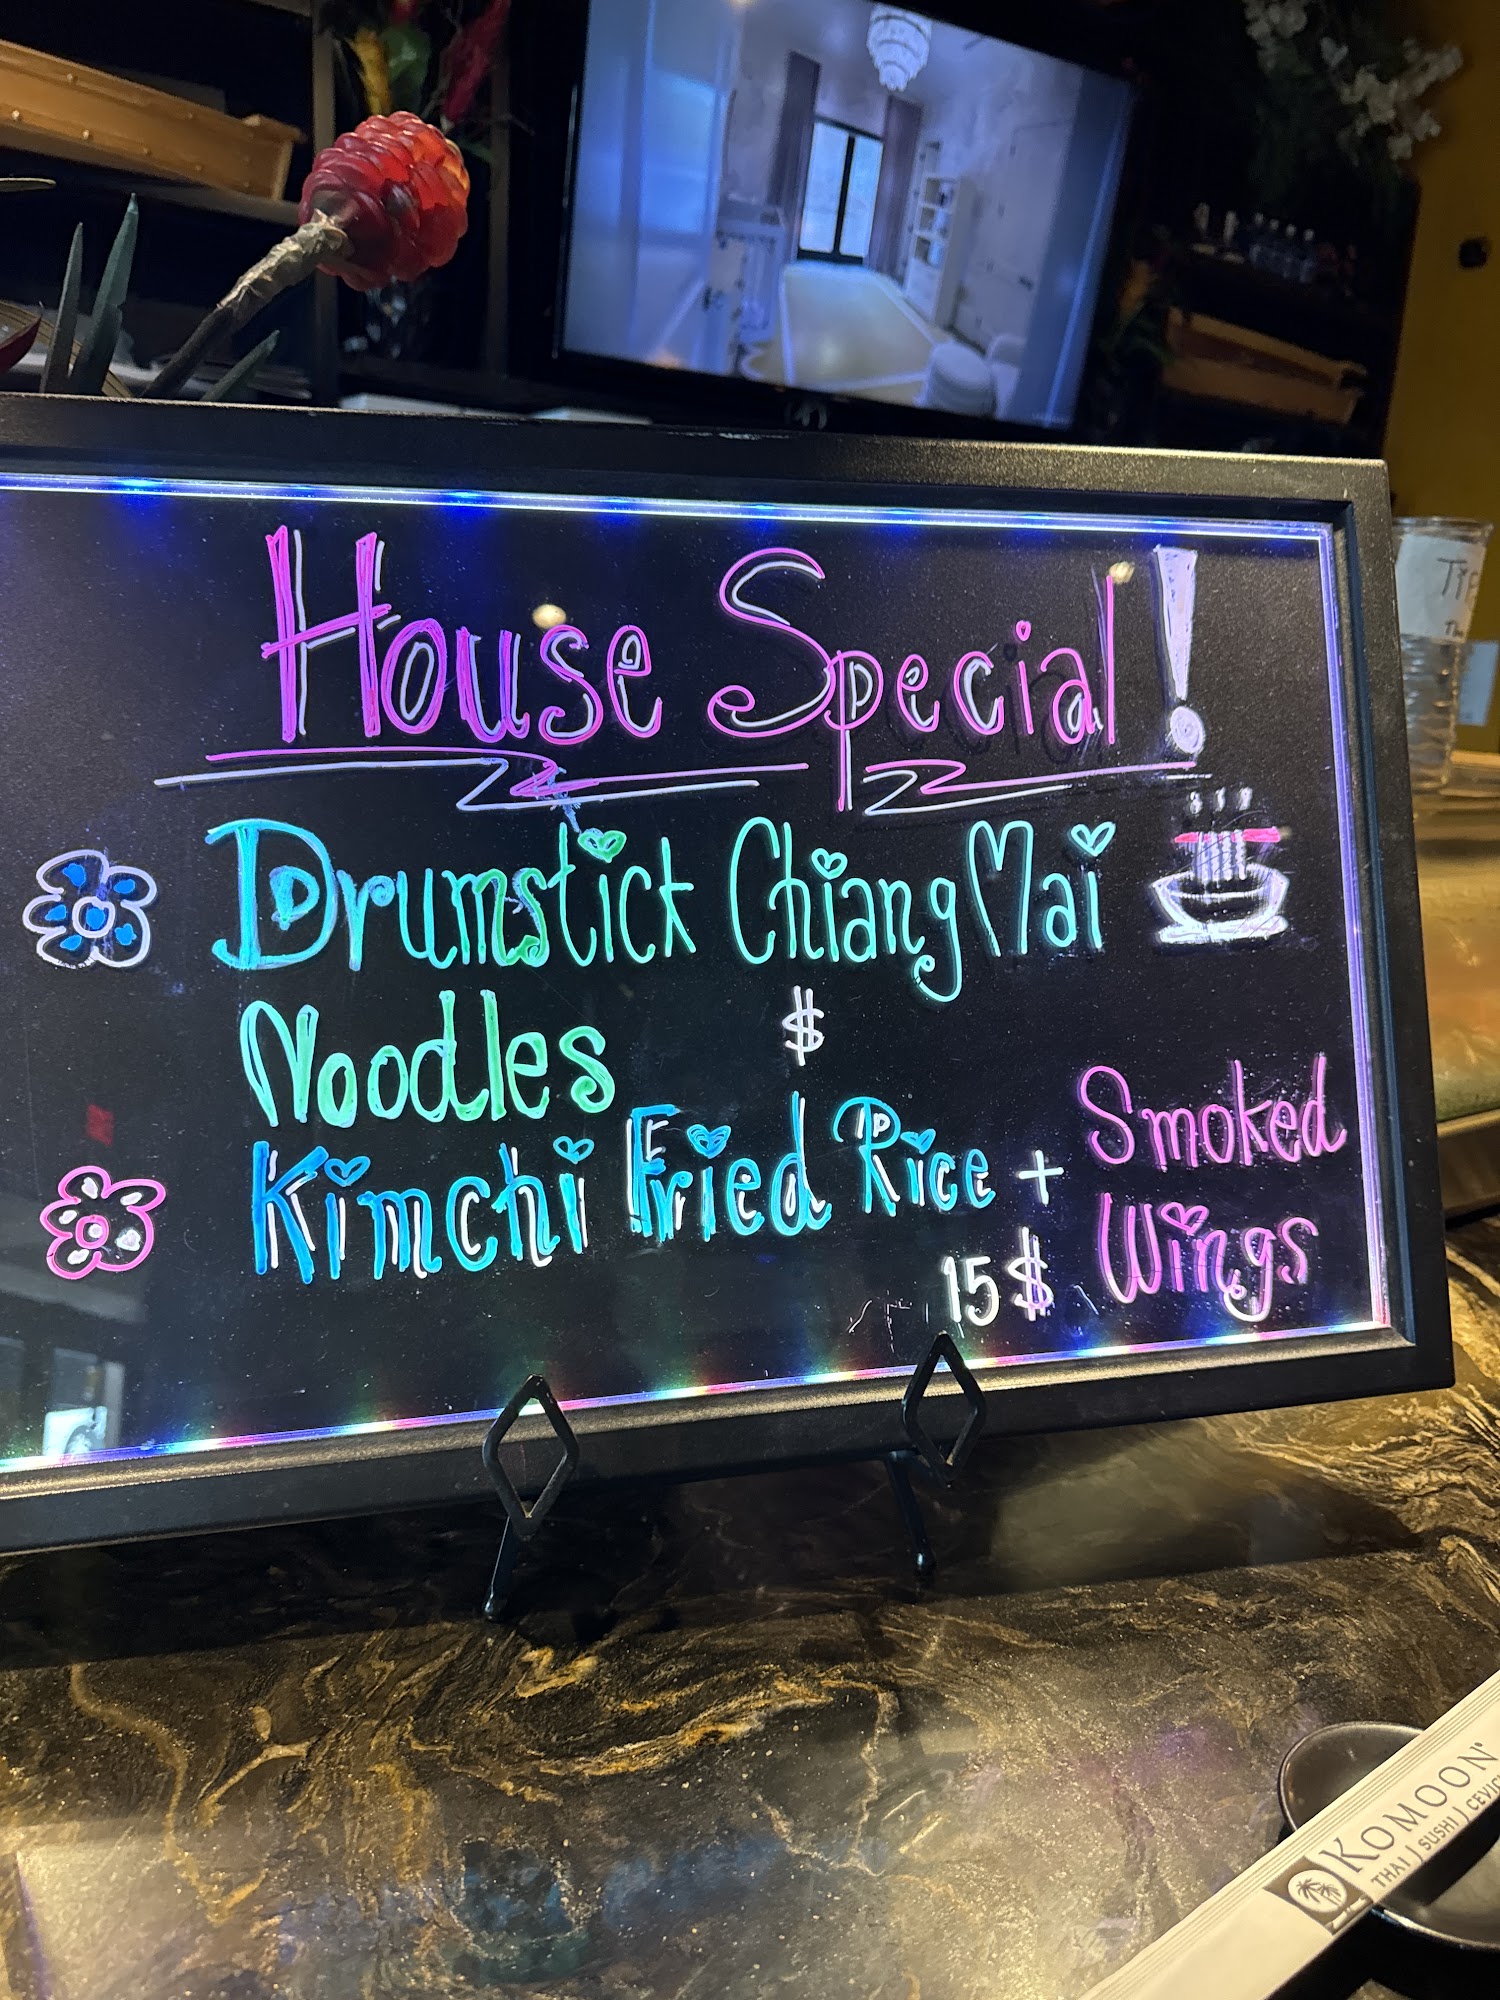 House Special!
Drumstick Chiang Mai
Noodles $
Kimchi Fried Rice + Smoked
15$ Wings
KOMOON
THAI | SUSHI |